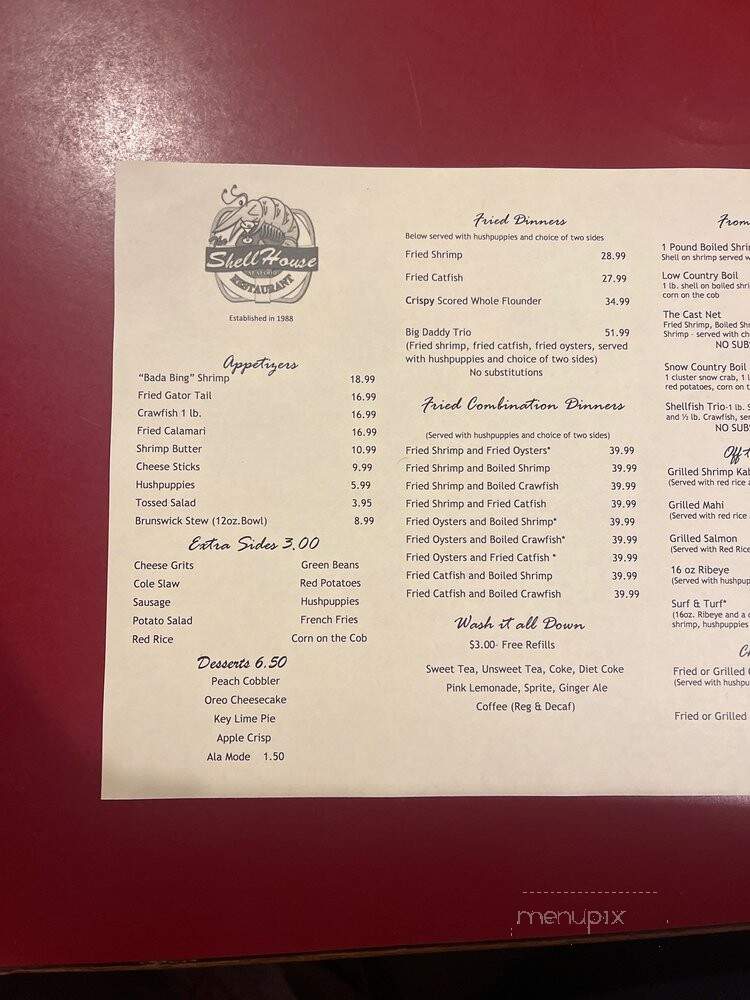 The
Shell House
SEAFOOD
RESTAURANT
Established in 1988
Appetizers
"Bada Bing" Shrimp 18.99
Fried Gator Tail 16.99
Crawfish 1 lb. 16.99
Fried Calamari 16.99
Shrimp Butter 10.99
Cheese Sticks 9.99
Hushpuppies 5.99
Tossed Salad 3.95
Brunswick Stew (12oz.Bowl) 8.99
Extra Sides 3.00
Cheese Grits Green Beans
Cole Slaw Red Potatoes
Sausage Hushpuppies
Potato Salad French Fries
Red Rice Corn on the Cob
Desserts 6.50
Peach Cobbler
Oreo Cheesecake
Key Lime Pie
Apple Crisp
Ala Mode 1.50
Fried Dinners
Below served with hushpuppies and choice of two sides
Fried Shrimp 28.99
Fried Catfish 27.99
Crispy Scored Whole Flounder 34.99
Big Daddy Trio 51.99
(Fried shrimp, fried catfish, fried oysters, served
with hushpuppies and choice of two sides)
No substitutions
Fried Combination Dinners
(Served with hushpuppies and choice of two sides)
Fried Shrimp and Fried Oysters* 39.99
Fried Shrimp and Boiled Shrimp 39.99
Fried Shrimp and Boiled Crawfish 39.99
Fried Shrimp and Fried Catfish 39.99
Fried Oysters and Boiled Shrimp* 39.99
Fried Oysters and Boiled Crawfish* 39.99
Fried Oysters and Fried Catfish * 39.99
Fried Catfish and Boiled Shrimp 39.99
Fried Catfish and Boiled Crawfish 39.99
Wash it all Down
$3.00- Free Refills
Sweet Tea, Unsweet Tea, Coke, Diet Coke
Pink Lemonade, Sprite, Ginger Ale
Coffee (Reg & Decaf)
From
1 Pound Boiled Shri
Shell on shrimp served w
Low Country Boil
1 lb. shell on boiled shri
corn on the cob
The Cast Net
Fried Shrimp, Boiled Sh
Shrimp - served with ch
NO SUB
Snow Country Boil
1 cluster snow crab, 1 l
red potatoes, corn on t
Shellfish Trio-1 lb. S
and ½ lb. Crawfish, ser
NO SUB
Off t
Grilled Shrimp Kab
(Served with red rice a
Grilled Mahi
(Served with red rice
Grilled Salmon
(Served with Red Rice
16 oz Ribeye
(Served with hushpup
Surf & Turf*
(16oz. Ribeye and a c
shrimp, hushpuppies
C
Fried or Grilled
(Served with hushpu
Fried or Grilled
menupix